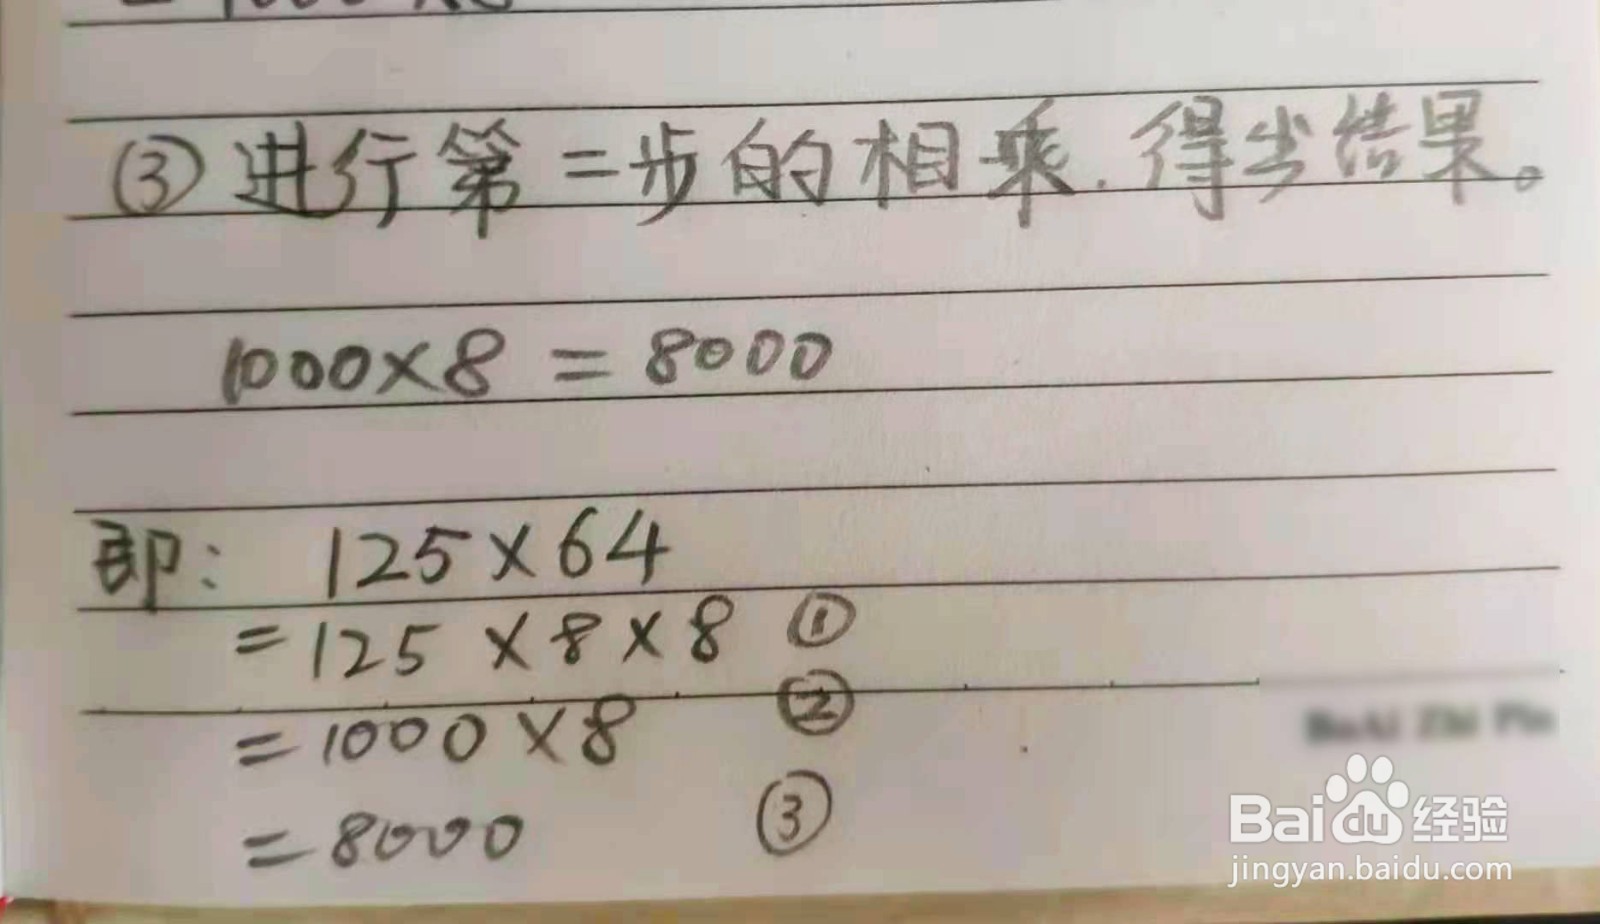 = 1000 ×8
③进行第二步的相乘.得出结果。
1000×8 = 8000
即: 125×64
=125 ×8×8 ①
=1000×8 ②
=8000 ③
Bai du 经验
jingyan.baidu.com